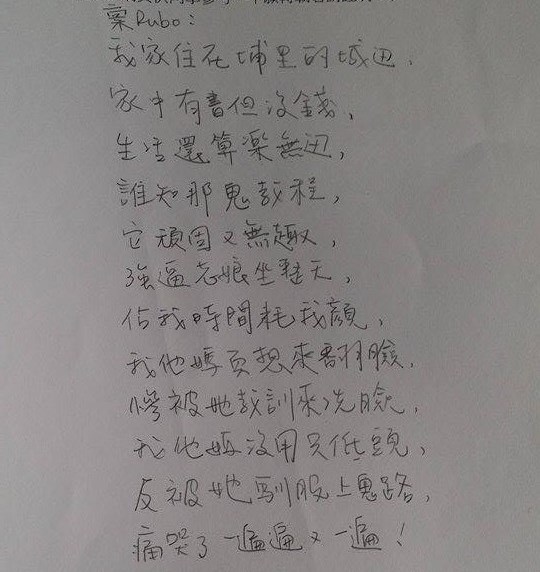 稟Rubo:
我家住在埔里的城边,
家中有書但沒錢,
生活還算樂無边,
誰知那鬼教程,
它頑固又無趣,
強逼老娘坐整天,
佔我時間耗我顏,
我他媽真想來翻臉,
慘被她教訓來洗臉,
我他媽沒用只低頭,
反被她馴服上鬼路,
痛哭了一遍遍又一遍!